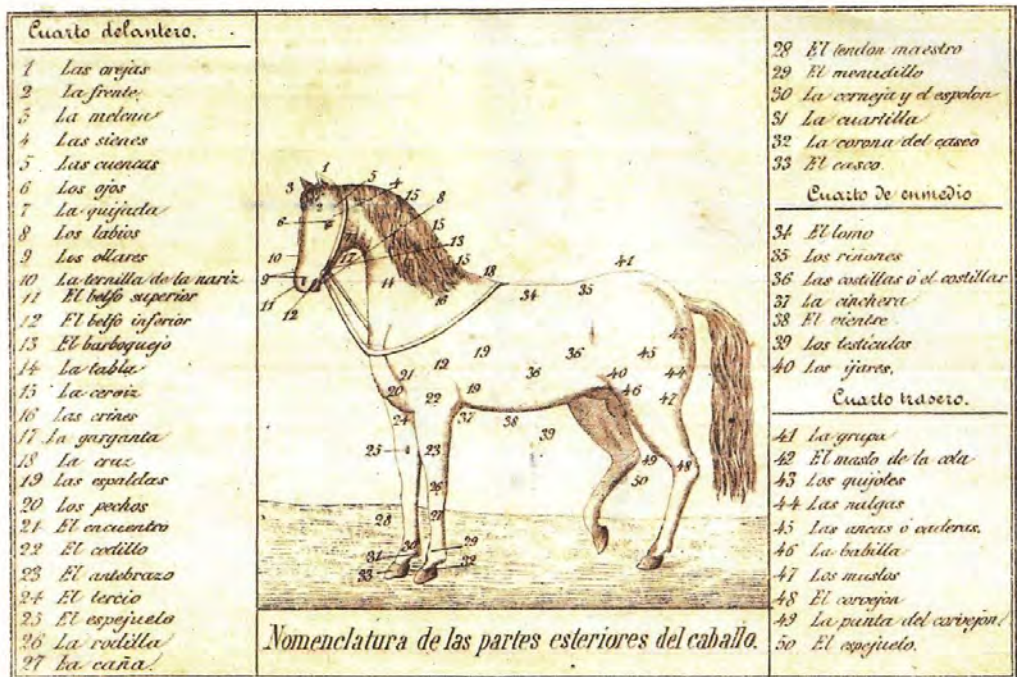 Cuarto delantero.
1 Las orejas
2 La frente.
3 La melena
4 Las sienes
5 Las cuencas
6 Los ojos
7 La quijada
8 Los labios
9 Los ollares
10 La ternilla de la nariz
11 El belfo superior
12 El belfo inferior
13 El barboquejo
14 La tabla
15 La cerviz
16 Las crines
17 La garganta
18 La cruz
19 Las espaldas
20 Los pechos
21 El encuentro
22 El codillo
23 El antebrazo
24 El tercio
25 El espejuelo
26 La rodilla
27 La caña.
1
3
5
4
2
15
8
6
15
17
13
10
15
9
14
18
41
16
34
35
11
12
19
36
45
12
21
36
40
44
20
22
19
46
47
24
37
38
39
25
23
49
48
26
50
28
27
29
30
31
32
33
Nomenclatura de las partes esteriores del caballo.
28 El tendon maestro
29 El menudillo
30 La cerneja y el espolon
31 La cuartilla
32 La corona del casco
33 El casco.
Cuarto de enmedio
34 El lomo
35 Los riñones
36 Las costillas ó el costillar
37 La cinchera
38 El vientre.
39 Los testiculos
40 Los ijares.
Cuarto trasero.
41 La grupa
42 El maslo de la cola
43 Los quijotes
44 Las nalgas
45 Las ancas ó caderas.
46 La babilla
47 Los muslos
48 El corvejon
49 La punta del corvejon
50 El espejuelo.